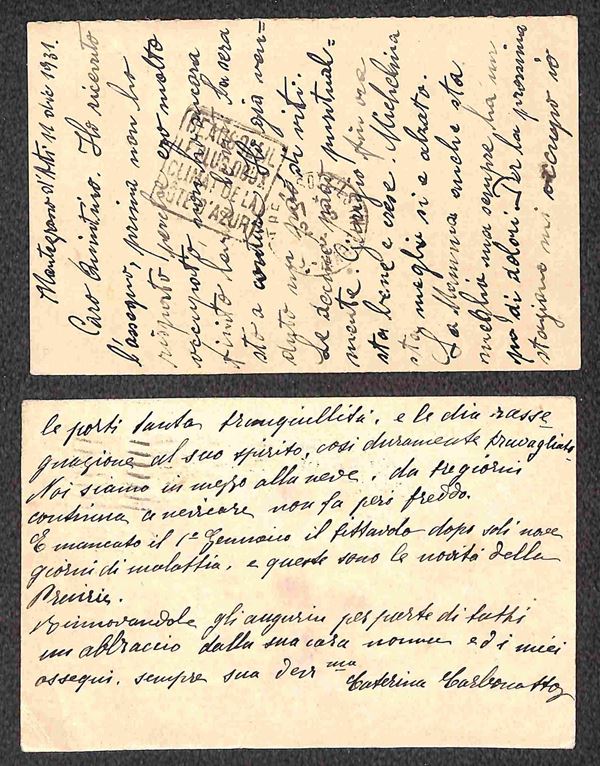 Montegrosso d'Asti, 11 dic 1931.
Caro Quintino. Ho ricevuto
l'assegno, prima non ho
risposto perchè ero molto
occupato, non ho ancora
finito
sto a ho già ven-
duto un paio di viti.
Le decime pago puntual-
mente. Giorgio finora
sta bene e cresce. Michelina
sta meglio si è alzata.
La Mamma anche sta
meglio ma sempre ha un
po di dolori. Per la prossima
stagione mi occupo io
CLIMAT DE LA
CÔTE D'AZUR
le porti tanta tranquillità, e le dia rasse-
gnazione al suo spirito, così duramente travagliato.
Noi siamo in mezzo alla neve, da tre giorni
continua a nevicare non fa però freddo.
E mancato il 1º Gennaio il fittavolo dopo soli nove
giorni di malattia, e queste sono le novità della
Rinnovandole gli augurii per parte di tutti
un abbraccio dalla sua cara nonna ed i miei
ossequi. sempre sua dev.ma
Caterina Carbonatto